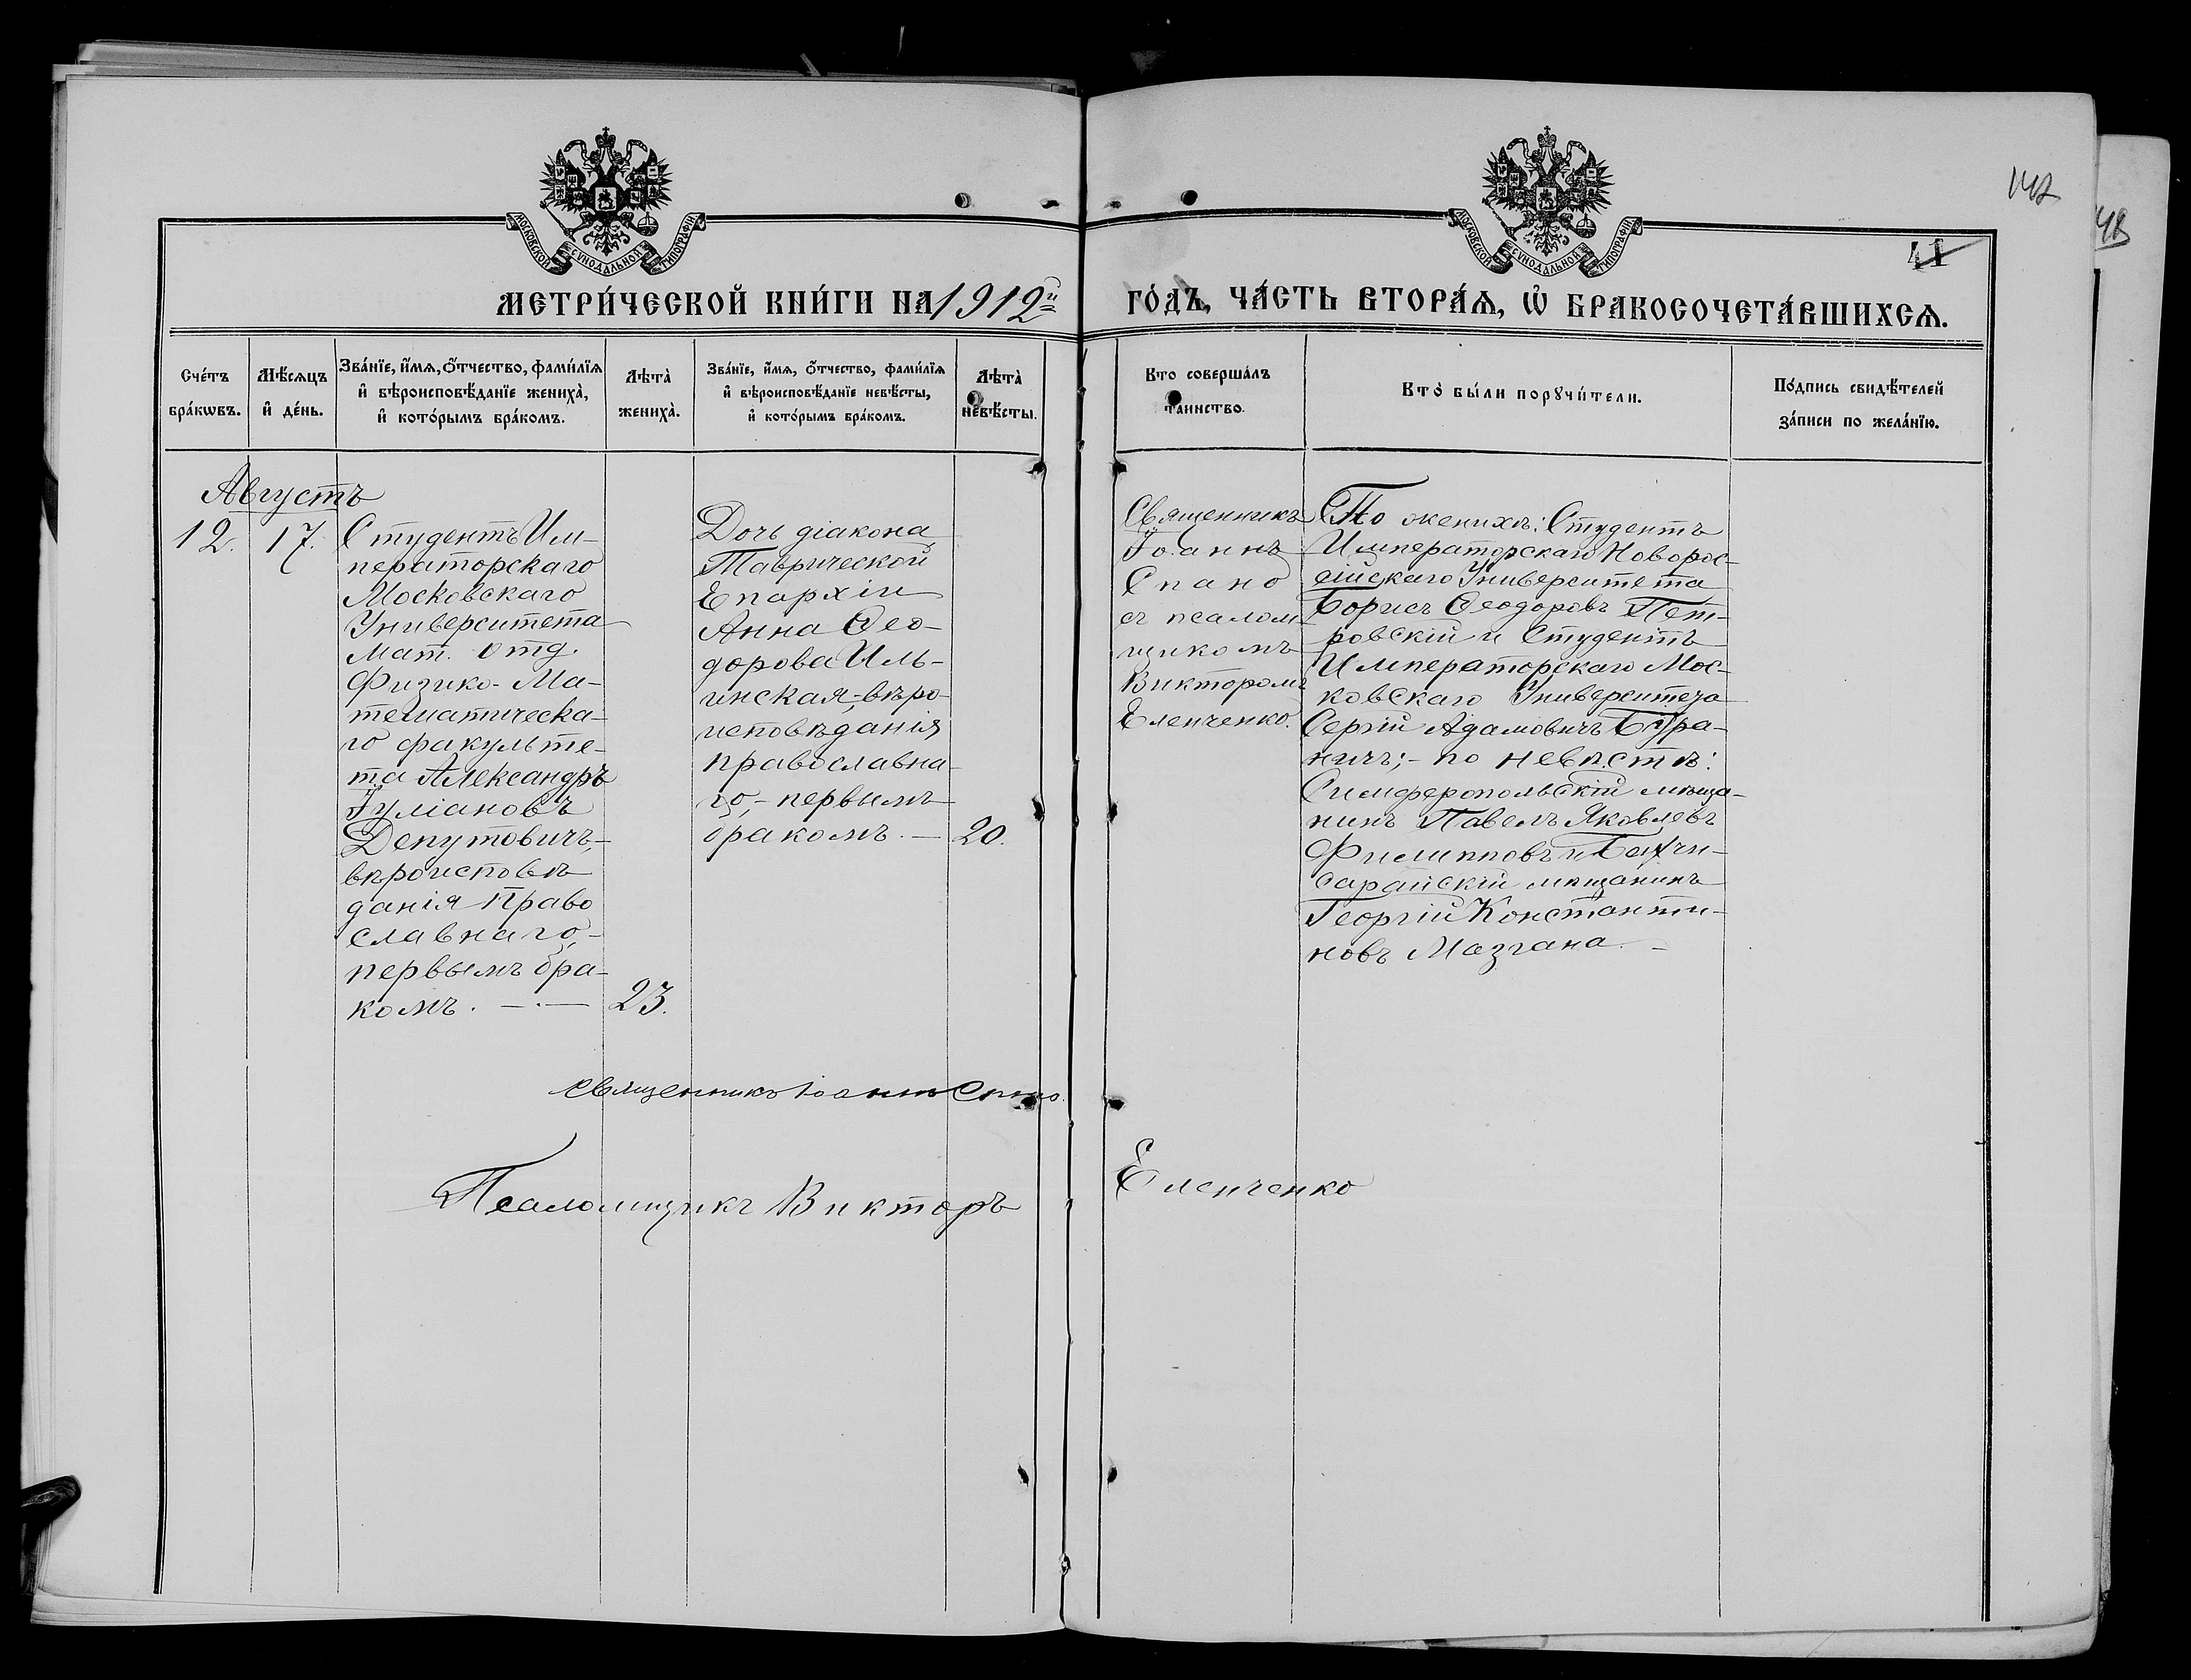 142
48
41
МОСКОВСКОЙ СѴНОДАЛЬНОЙ ТИПОГРАФІИ
МОСКОВСКОЙ СѴНОДАЛЬНОЙ ТИПОГРАФІИ
МЕТРИ́ЧЕСКОЙ КНИ́ГИ НА 1912й
ГО́ДЪ, ЧА́СТЬ ВТОРА́Ѧ, Ѽ БРАКОСОЧЕТА́ВШИХСѦ.
Сче́тъ бра́кωвъ.
Мѣ́сѧцъ и҆ де́нь.
Зва́нїе, и҆́мѧ, ѻ҆́тчество, фами́лїѧ
и҆ вѣроисповѣ́данїе жениха̀,
и҆ кото́рымъ бра́комъ.
Лѣта̀ жениха̀.
Зва́нїе, и҆́мѧ, ѻ҆́тчество, фами́лїѧ
и҆ вѣроисповѣ́данїе невѣ́сты,
и҆ кото́рымъ бра́комъ.
Лѣта̀ невѣ́сты.
Кто соверша́лъ
таинство.
Кто̀ бы́ли порꙋчи́тели.
По́дпись свидѣ́телей
за́писи по жела́нїю.
Августъ
12.
17.
Студентъ Им-
ператорскаго
Московскаго
Университета
Мат. отд.
Физико-Ма-
тематическа-
го факульте-
та Александръ
Іуліановъ
Депутовичъ,-
вѣроисповѣ
данія Право
славнаго,-
первымъ бра-
комъ. —.—
23.
Дочь діакона
Таврической
Епархіи
Анна Ѳео-
дорова Иль-
инская,-вѣро-
исповѣданія
православна-
го,- первымъ
бракомъ. —
20.
Священникъ
Іоаннъ
Спано
съ псалом-
щикомъ
Викторомъ
Еленченко.
По женихѣ: Студентъ
Императорскаго Новорос-
сійскаго Университета
Борисъ Ѳеодоровъ Пет-
ровскій и Студентъ
Императорскаго Мос-
ковскаго Университета
Сергій Адамовичъ Бура-
ничъ;- по невѣстѣ:
Симферопольскій мѣща-
нинъ Павелъ Яковлевъ
Филипповъ и Бахчи-
сарайскій мѣщанинъ
Георгій Константи-
новъ Мазгана. —
Священникъ Іоаннъ Спано.
Псаломщикъ Викторъ
Еленченко